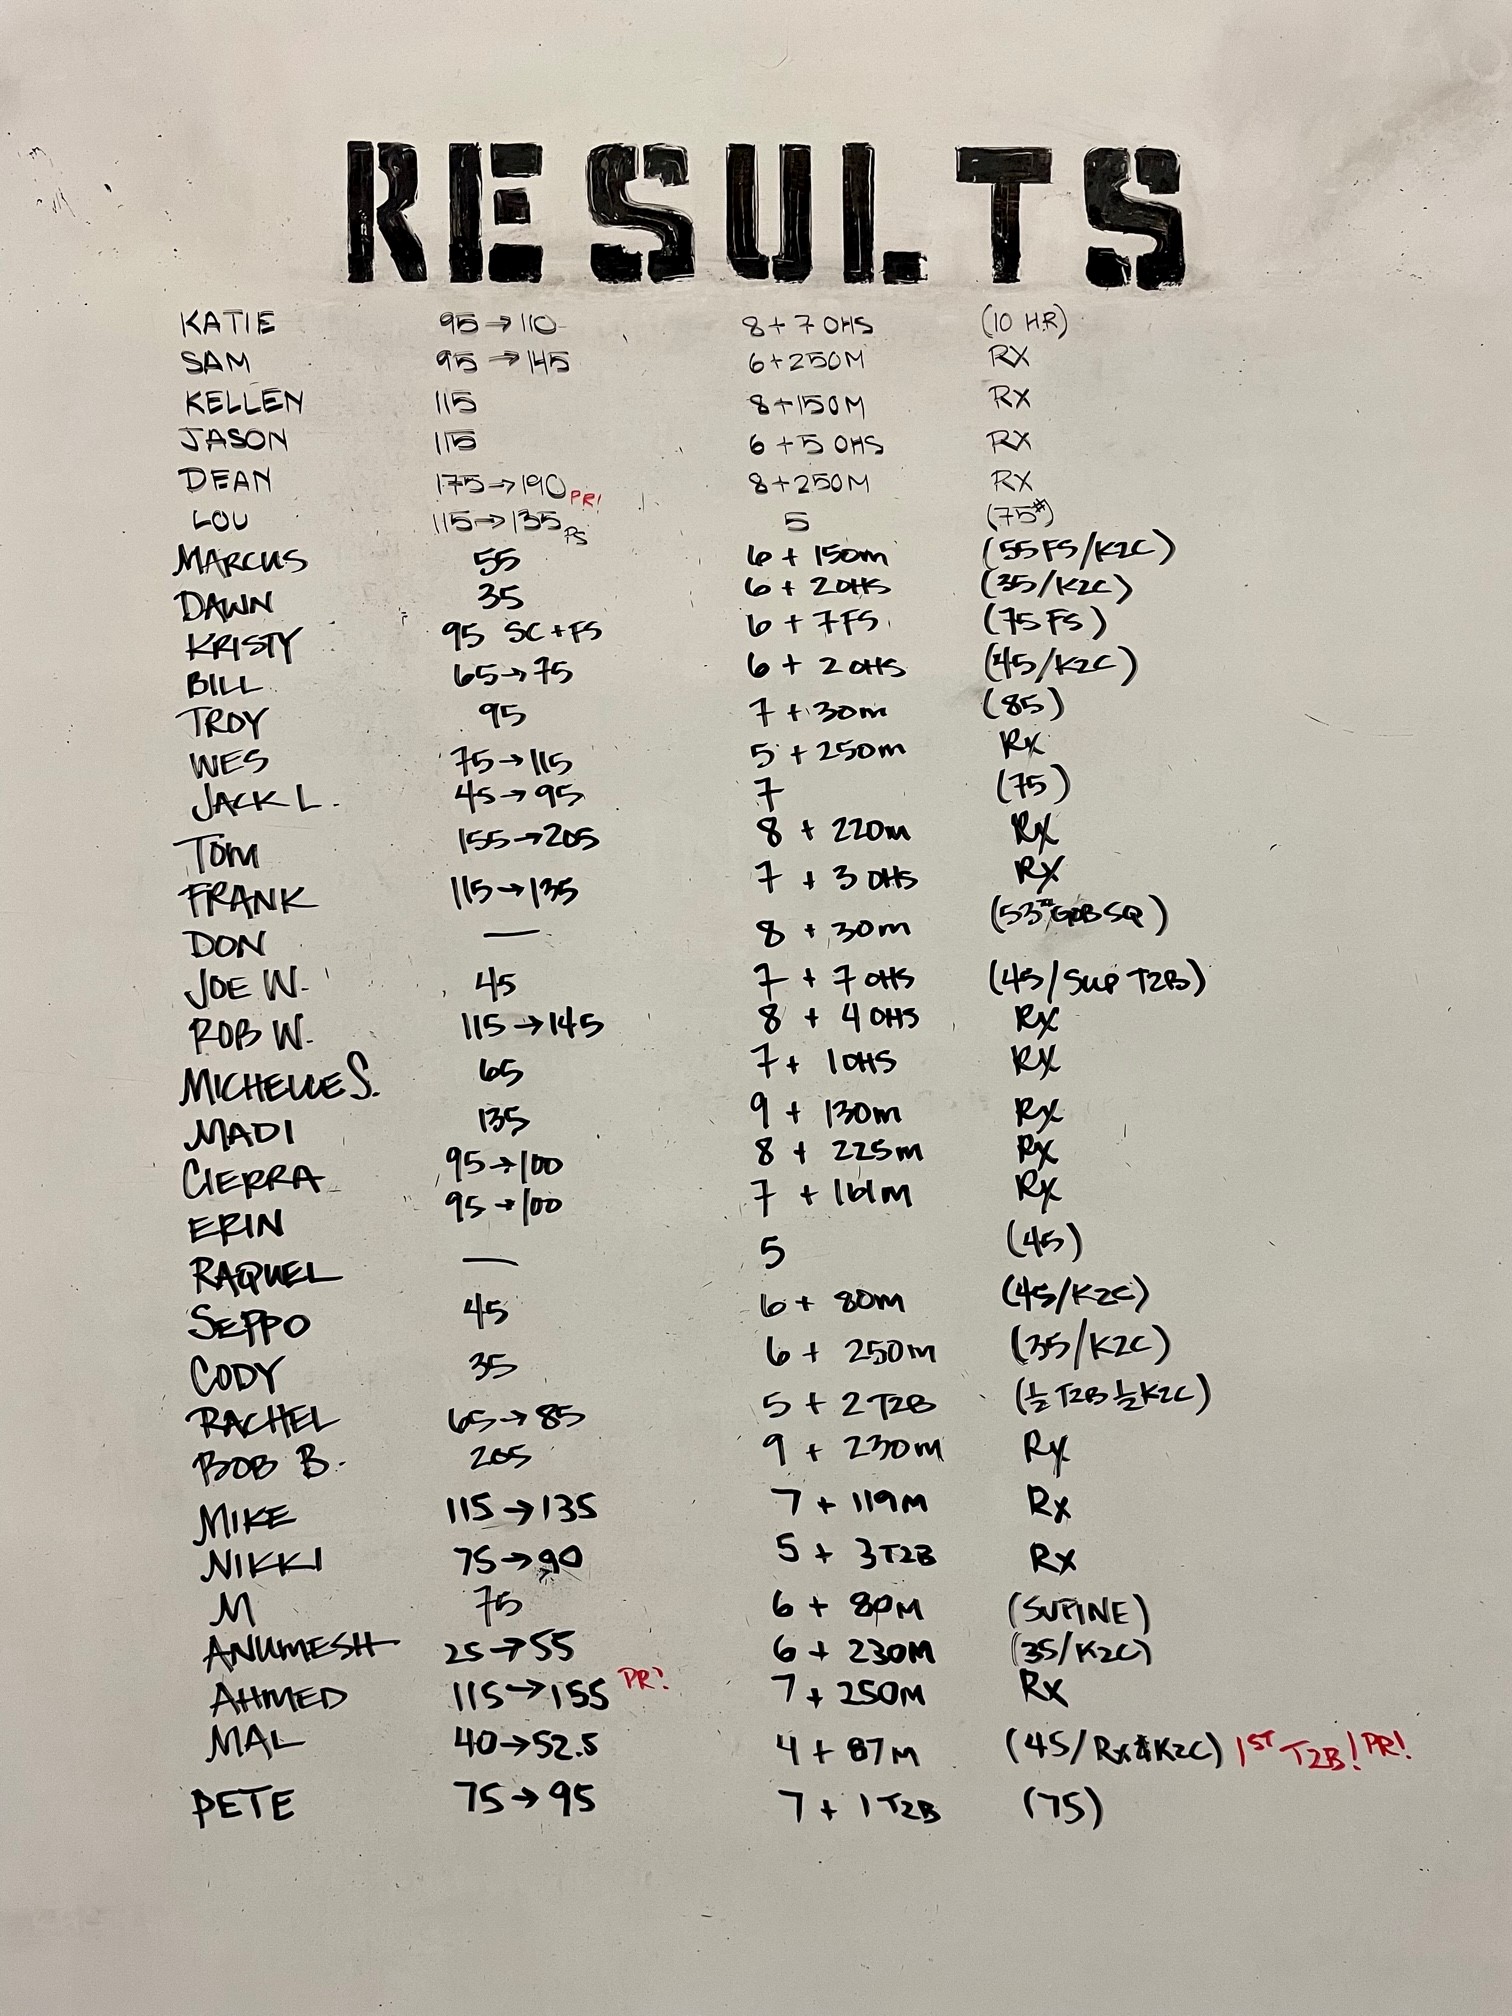 RESULTS
KATIE 95→110 8+7 OHS (10 HR)
SAM 95→145 6+250M RX
KELLEN 115 8+150M RX
JASON 115 6+5 OHS RX
DEAN 175→190 PR! 8+250M RX
LOU 115→135 PS 5 (75#)
MARCUS 55 6 + 150m (55 FS/K2C)
DAWN 35 6 + 2 OHS (35/K2C)
KRISTY 95 SC+FS 6 + 7 FS (75 FS)
BILL 65→75 6 + 2 OHS (45/K2C)
TROY 95 7 + 30m (85)
WES 75→115 5 + 250m Rx
JACK L. 45→95 7 (75)
TOM 155→205 8 + 220m Rx
FRANK 115→135 7 + 3 OHS Rx
DON — 8 + 30m (53# GOB SQ)
JOE W. 45 7 + 7 OHS (45/SUP T2B)
ROB W. 115→145 8 + 4 OHS Rx
MICHELLE S. 65 7 + 1 OHS Rx
MADI 135 9 + 130m Rx
CIERRA 95→100 8 + 225m Rx
ERIN 95→100 7 + 161m Rx
RAQUEL — 5 (45)
SEPPO 45 6 + 80m (45/K2C)
CODY 35 6 + 250m (35/K2C)
RACHEL 65→85 5 + 2 T2B (½ T2B ½ K2C)
BOB B. 205 9 + 230m Rx
MIKE 115→135 7 + 119M Rx
NIKKI 75→90 5 + 3 T2B Rx
M 75 6 + 80M (SUPINE)
ANUMESH 25→55 6 + 230M (35/K2C)
AHMED 115→155 PR! 7 + 250M Rx
MAL 40→52.5 4 + 87M (45/Rx & K2C) 1ST T2B! PR!
PETE 75→95 7 + 1 T2B (75)